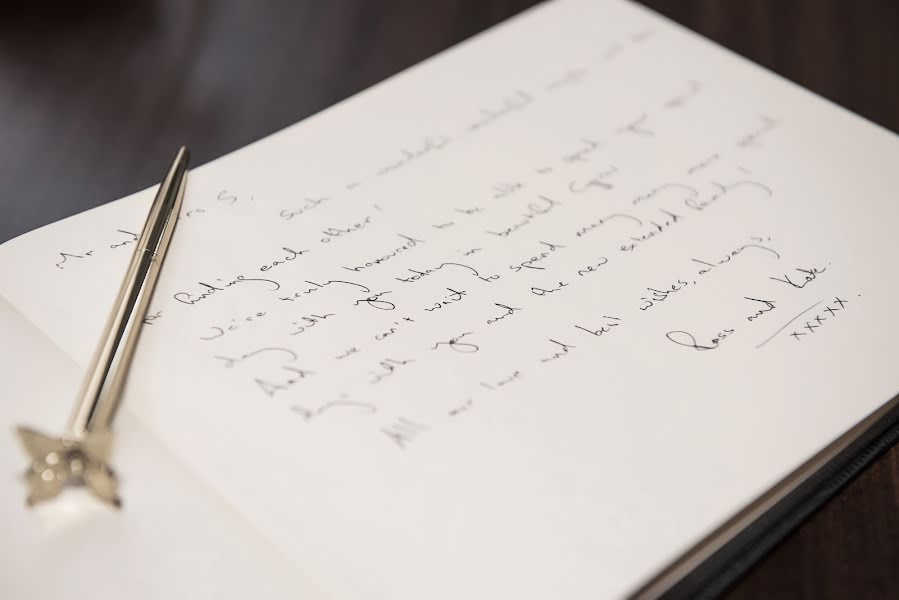 Mr and Mrs S,
Such a wonderful
for finding each other!
We're truly honoured to be able to spend your special
day with you today in beautiful
And we can't wait to spend many many more special
days with you and the new extended family!
All our love and best wishes, always,
Ross and Kate.
xxxxx.